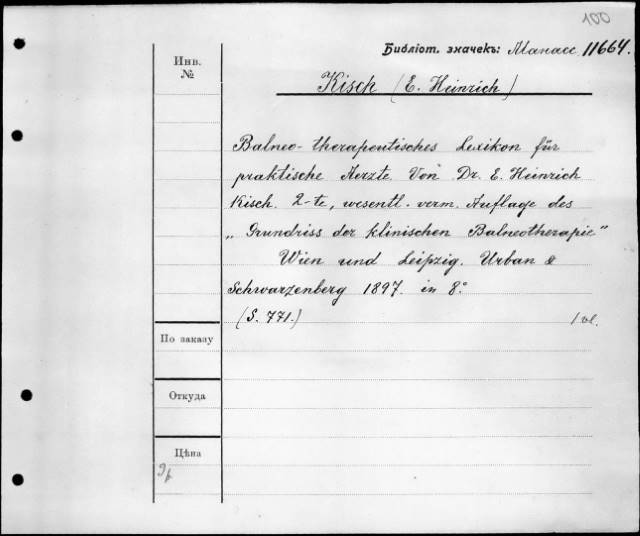 100
Библіот. значекъ: Манасс 11664.
Инв.
№
Kisch (E. Heinrich)
Balneo-therapeutisches Lexikon für
praktische Aerzte Von Dr. E. Heinrich
Kisch. 2-te, wesentl. verm. Auflage des
„Grundriss der klinischen Balneotherapie"
Wien und Leipzig. Urban &
Schwarzenberg 1897. in 8º
(S. 771.) 1 vol.
По заказу
Откуда
Цѣна